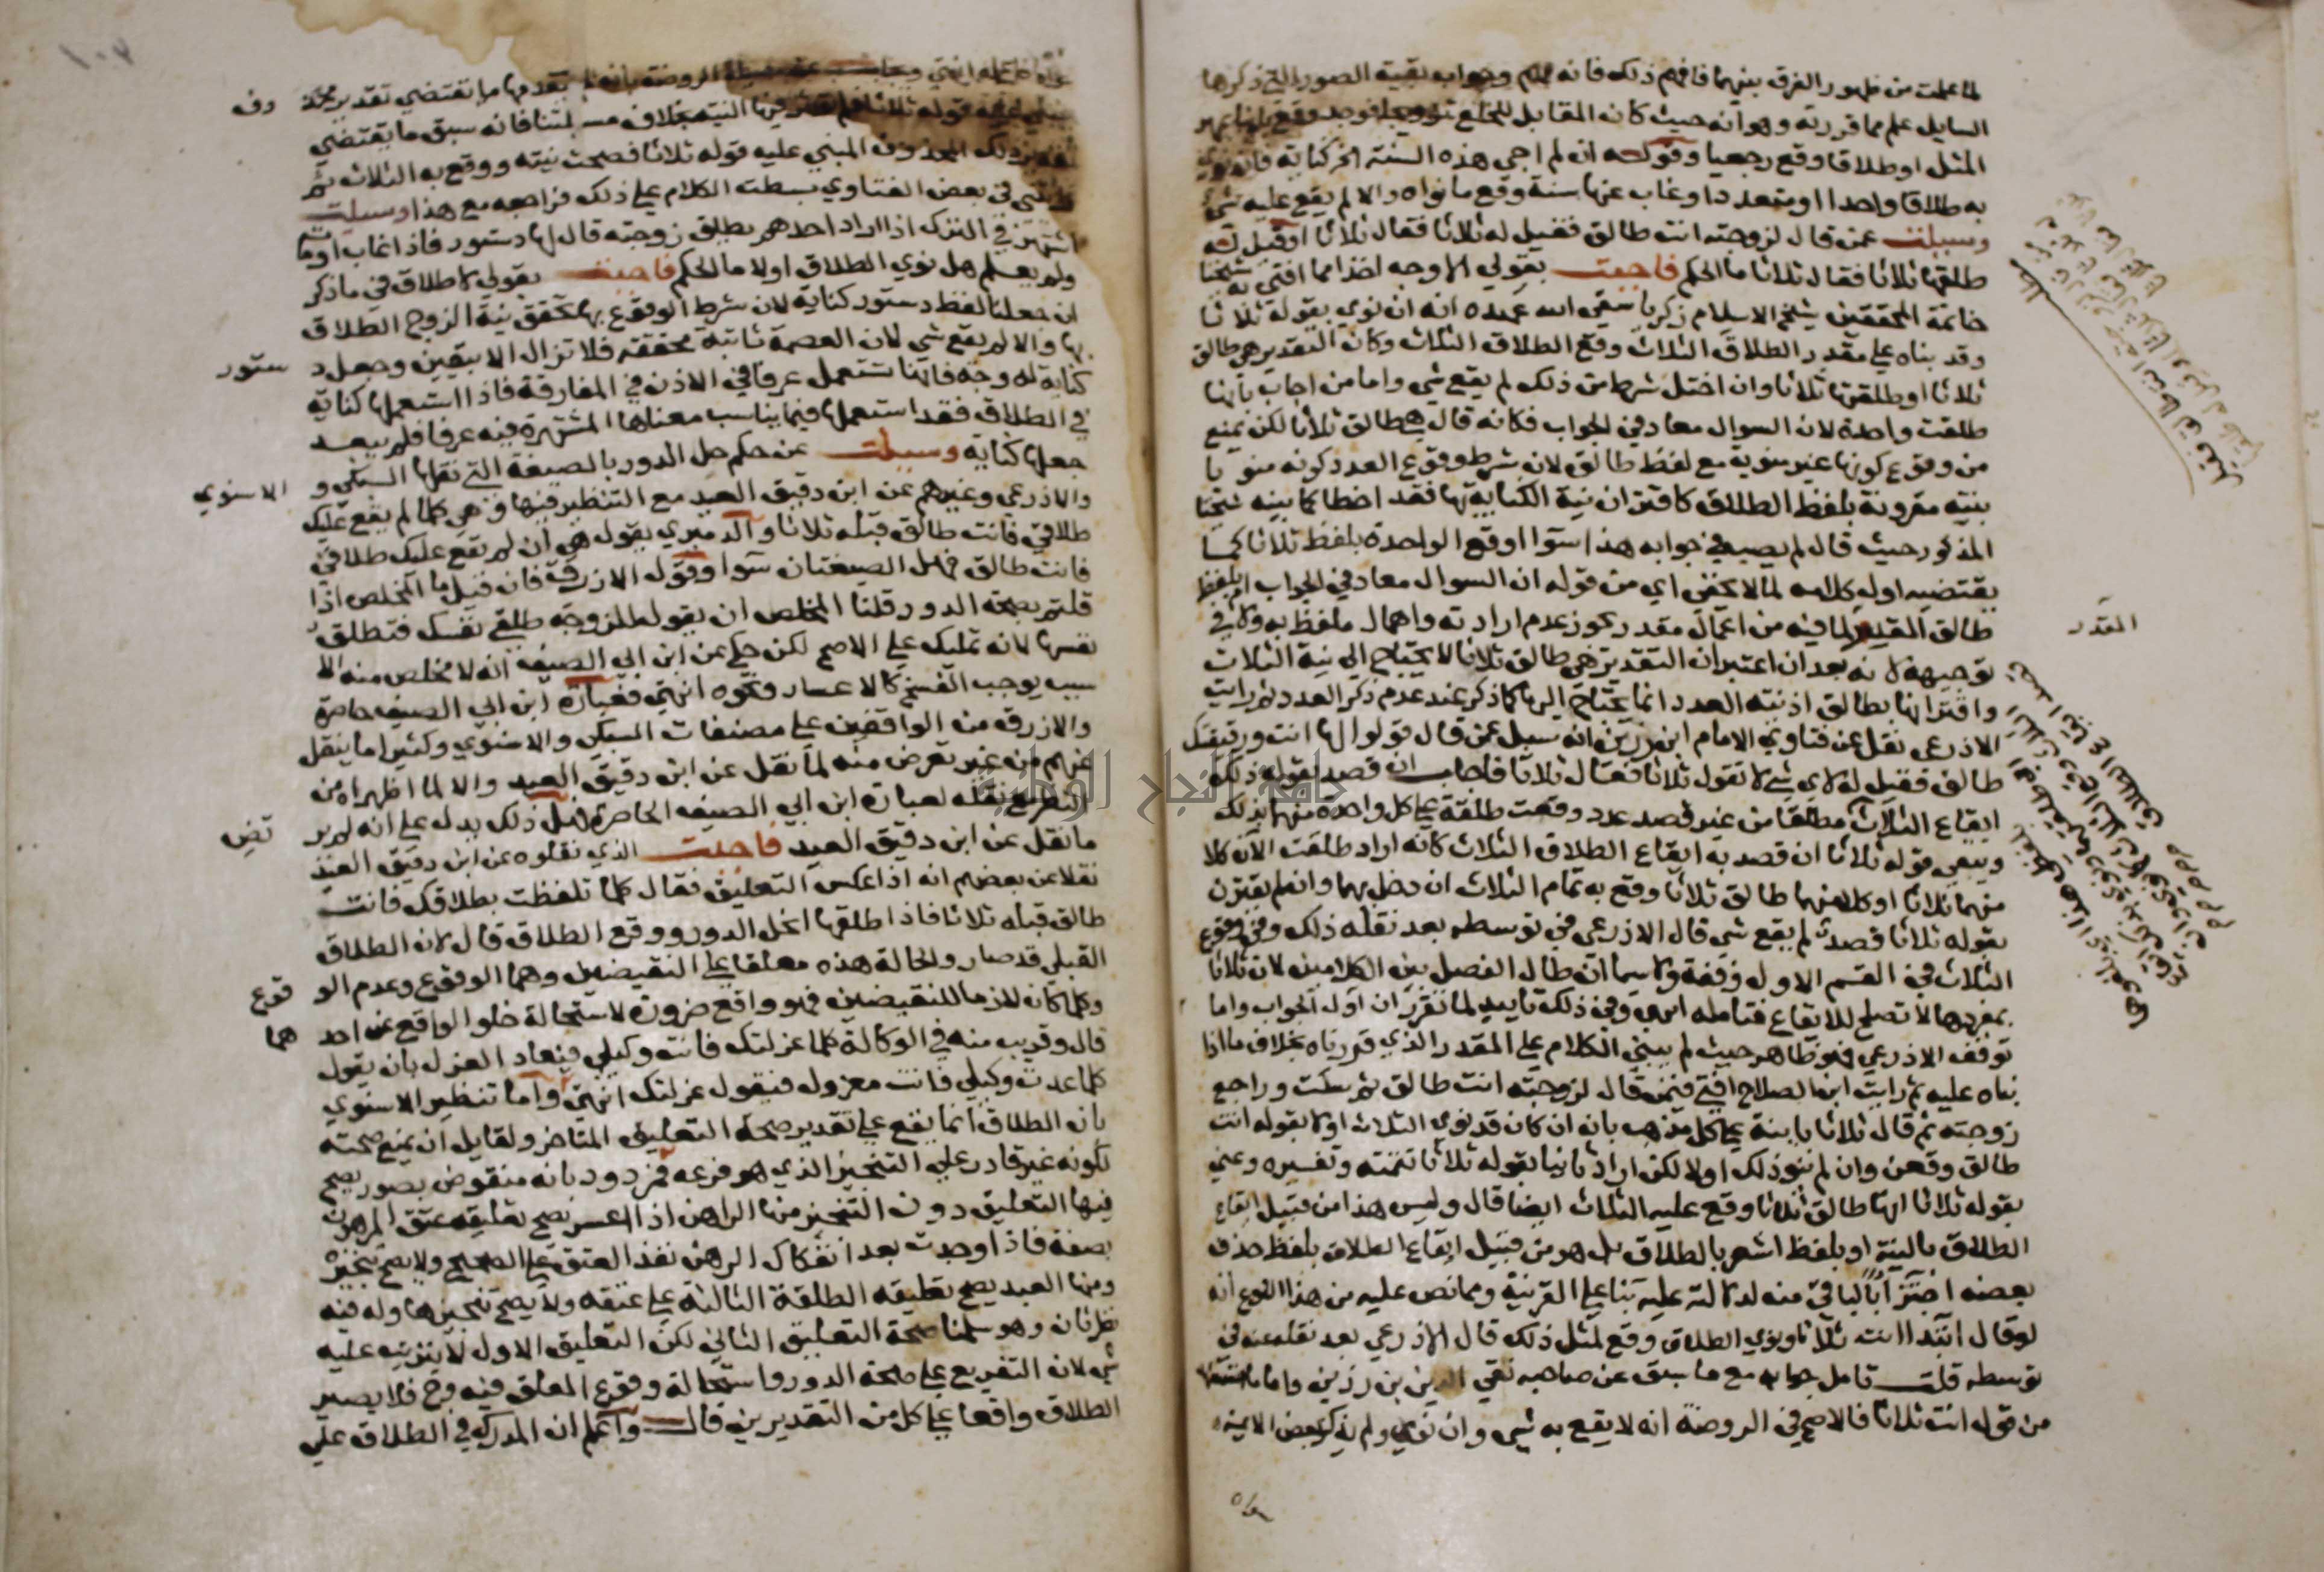 لما علمت من ظهور الفرق بينهما فافهم ذلك فانه مهم وجواب بقية الصور التي ذكرها
السايل علم مما قررته وهو انه حيث كان المقابل للخلع
المثل او طلاقا وقع رجعيا وقوله ان لم اجي هذه السنة اخر كناية فان نوي
به طلاقا واحدا او متعددا وغاب عنها سنة وقع ما نواه والا لم يقع عليه شي
وسيلت عمن قال لزوجته انت طالق فقيل له ثلاثا فقال ثلاثا او قيل له
طلقها ثلاثا فقال ثلاثا ما الحكم فاجبت بقولي الاوجه اخذا مما افتى به شيخنا
خاتمة المحققين شيخ الاسلام زكريا سقى الله عهده انه ان نوي بقوله ثلاثا
وقد بناه على مقدر الطلاق الثلاث وقع الطلاق الثلاث وكان التقدير هي طالق
ثلاثا او طلقتها ثلاثا وان اختل شرط من ذلك لم يقع شي واما من اجاب بانها
طلقت واحدة لان السوال معاد في الجواب فكانه قال هي طالق ثلاثا لكن يمنع
من وقوع كونها غير منوية مع لفظ طالق لان شرط وقوع العدد كونه منويا
بنية مقرونة بلفظ الطلاق كاقتران نية الكناية بها فقد اخطا كما بينه شيخنا
المذكور حيث قال لم يصب في جوابه هذا سوا اوقع الواحدة بلفظ ثلاثا كما
يقتضيه اول كلامه لما لا يخفى اي من قوله ان السوال معاد في الجواب ام بلفظ
طالق المقدر لما فيه من اعمال مقدر يجوز عدم ارادته واهمال ملفوظ به ولا في
توجيهه لانه بعد ان اعتبر ان التقدير هي طالق ثلاثا لا يحتاج الى نية الثلاث
واقترانها بطالق اذ نية العدد انما يحتاج اليها كما ذكر عند عدم ذكر العدد ثم رايت
الاذرعي نقل عن فتاوي الامام ابن رزين انه سيل عمن قال قولوا لها انت ورفيقتك
طالق فقيل له لاي شي لا تقول ثلاثا فقال ثلاثا فاجاب ان قصد بقوله ذلك
ايقاع الثلاث مطلقا من غير قصد عدد وقعت طلقة على كل واحدة منهما بذلك
وبقي قوله ثلاثا ان قصد به ايقاع الطلاق الثلاث كانه اراد طلقت الان كلا
منهما ثلاثا او كلا منهما طالق ثلاثا وقع به تمام الثلاث ان دخل بهما وان لم يقترن
بقوله ثلاثا قصد لم يقع شي قال الاذرعي في توسطه بعد نقله ذلك وفي وقوع
الثلاث في القسم الاول وقفة ولا سيما ان طال الفصل بين الكلامين لان ثلاثا
بمفردها لا تصلح للايقاع فتامله انتهى وفي ذلك تاييد لما تقرر ان اول الجواب واما
توقف الاذرعي فهو ظاهر حيث لم يبني الكلام على المقدر الذي قررناه بخلاف ما اذا
بناه عليه ثم رايت ابن الصلاح افتى فيمن قال لزوجته انت طالق ثم سكت وراجع
زوجته ثم قال ثلاثا باينة على كل مذهب بانه ان كان قد نوى الثلاث اولا بقوله انت
طالق وقعن وان لم ينو ذلك اولا لكن اراد ثانيا بقوله ثلاثا تتمته وتفسيره وعنى
بقوله ثلاثا انها طالق ثلاثا وقع عليه الثلاث ايضا قال وليس هذا من قبيل ايقاع
الطلاق بالنية او بلفظ اشعر بالطلاق بل هو من قبيل ايقاع الطلاق بلفظ حذف
بعضه اجتزا بالباقي منه لدلالته عليه بنا على القرينة ومما نص عليه من هذا النوع انه
لو قال ابتدا انت ثلاثا ونوي الطلاق وقع لمثل ذلك قال الاذرعي بعد نقله عنه في
توسطه قلت تامل جوابه مع ما سبق عن صاحبه تقي الدين بن رزين واما ما
من قوله انت ثلاثا فالاصح في الروضة انه لا يقع به شي وان نوى ولم يذكر بعض الايمة
المقدر
الروضة بانه لم يتقدمها ما يقتضي تقدير
دف
قوله ثلاثا فلم تؤثر فيها النية بخلاف مسيلتنا فانه سبق ما يقتضي
ذلك المحذوف المبني عليه قوله ثلاثا فصحت نيته ووقع به الثلاث ثم
في بعض الفتاوي بسطت الكلام على ذلك فراجعه مع هذا وسيلت
اشتهر في الترك اذا اراد احدهم يطلق زوجته قال لها دستور فاذا غاب او مات
ولم يعلم هل نوي الطلاق اولا ما الحكم فاجبت بقولي لا طلاق في ما ذكر
ان جعلنا لفظ دستور كناية لان شرط الوقوع بها تحقق نية الزوج الطلاق
بها والا لم يقع شي لان العصمة ثابتة محققة فلا تزال الا بيقين وجعل د
ستور
كناية له وجه فانها تستعمل عرفا في الاذن في المفارقة فاذا استعملها كناية
في الطلاق فقد استعملها فيما يناسب معناها المشتهرة فيه عرفا فلم يبعد
جعلها كناية وسيلت عن حكم حل الدور بالصيغة التي نقلها السبكي و
الاسنوي
والاذرعي وغيرهم عن ابن دقيق العيد مع التنظير فيها وهي كلما لم يقع عليك
طلاقي فانت طالق قبله ثلاثا والدميري بقوله هي ان لم يقع عليك طلاقي
فانت طالق فهل الصيغتان سوا وقول الازرق فان قيل ما المخلص اذا
قلتم بصحة الدور قلنا المخلص ان يقول للزوجة طلقي نفسك فتطلق
نفسها لانه تمليك على الاصح لكن حكي عن ابن ابي الصيف انه لا مخلص منه الا
سبب يوجب الفسخ كالاعسار ونحوه انتهى فعبارة ابن ابي الصيف حاصرة
والازرق من الواقفين على مصنفات السبكي والاسنوي وكثيرا ما ينقل
عنهم من غير تعرض منه لما نقل عن ابن دقيق العيد والا لما اظهراه من
التفريع نقله لعبارة ابن ابي الصيف الحاصرة فهل ذلك يدل على انه لم ير
تض
ما نقل عن ابن دقيق العيد فاجبت الذي نقلوه عن ابن دقيق العيد
نقلا عن بعضهم انه اذا عكس التعليق فقال كلما تلفظت بطلاقك فانت
طالق قبله ثلاثا فاذا طلقها انحل الدور ووقع الطلاق قال لان الطلاق
القبلي قد صار والحالة هذه معلقا على النقيضين وهما الوقوع وعدم الو
قوع
وكلما كان لازما للنقيضين فهو واقع ضرورة لاستحالة خلو الواقع عن احد
هما
قال وقريب منه في الوكالة كلما عزلتك فانت وكيلي فيعاد العزل بان يقول
كلما عدت وكيلي فانت معزول فيقول عزلتك انتهى واما تنظير الاسنوي
بان الطلاق انما يقع على تقدير صحة التعليق المتاخر ولقايل ان يمنع صحته
لكونه غير قادر على التنجيز الذي هو فرعه فمردود بانه منقوض بصور يصح
فيها التعليق دون التنجيز منها الراهن اذا اعسر يصح تعليقه عتق المرهون
بصفة فاذا وجدت بعد انفكاك الرهن نفذ العتق على الصحيح ولا يصح تنجيزه
ومنها العبد يصح تعليقه الطلقة الثالثة على عتقه ولا يصح تنجيزها وله فيه
نظر ثان وهو سلمنا صحة التعليق الثاني لكن التعليق الاول لا يترتب عليه
شي لان التفريع على صحة الدور واستحالة وقوع المعلق فيه وح فلا يصير
الطلاق واقعا على كل من التقديرين قال واعلم ان المدرك في الطلاق على
جامعة النجاح الوطنية